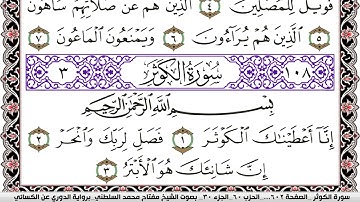 فَوَيْلٌ لِّلْمُصَلِّينَ ٤ ٱلَّذِينَ هُمْ عَن صَلَاتِهِمْ سَاهُونَ
٥ ٱلَّذِينَ هُمْ يُرَآءُونَ ٦ وَيَمْنَعُونَ ٱلْمَاعُونَ ٧
٣ سُورَةُ ٱلْكَوْثَرِ ١٠٨
بِسْمِ ٱللَّهِ ٱلرَّحْمَٰنِ ٱلرَّحِيمِ
إِنَّآ أَعْطَيْنَٰكَ ٱلْكَوْثَرَ ١ فَصَلِّ لِرَبِّكَ وَٱنْحَرْ ٢
إِنَّ شَانِئَكَ هُوَ ٱلْأَبْتَرُ ٣
سورة الكوثر _ الصفحة ٦٠٢ ... الحزب ٦٠ _ الجزء ٣٠ _ بصوت الشيخ مفتاح محمد السلطني_ برواية الدوري عن الكسائي